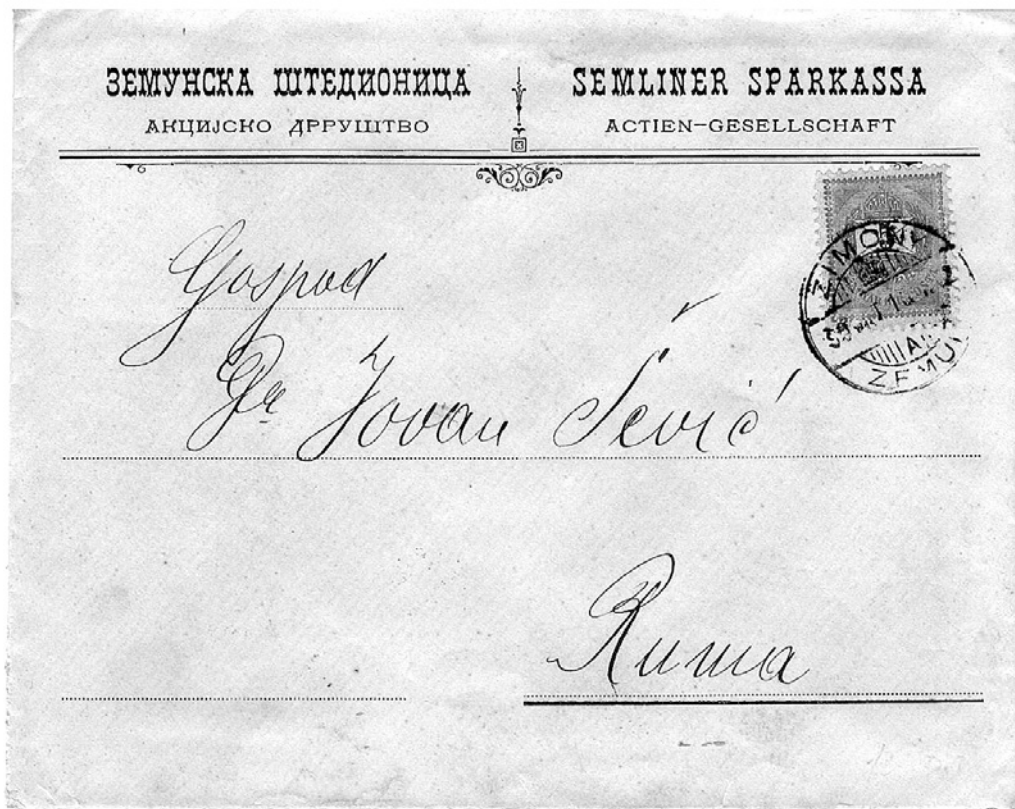 ЗЕМУНСКА ШТЕДИОНИЦА
АКЦИЈСКО ДРРУШТВО
SEMLINER SPARKASSA
ACTIEN-GESELLSCHAFT
ZIMONY
ZEMUN
Gospod
Dr Jovan Šević
Ruma